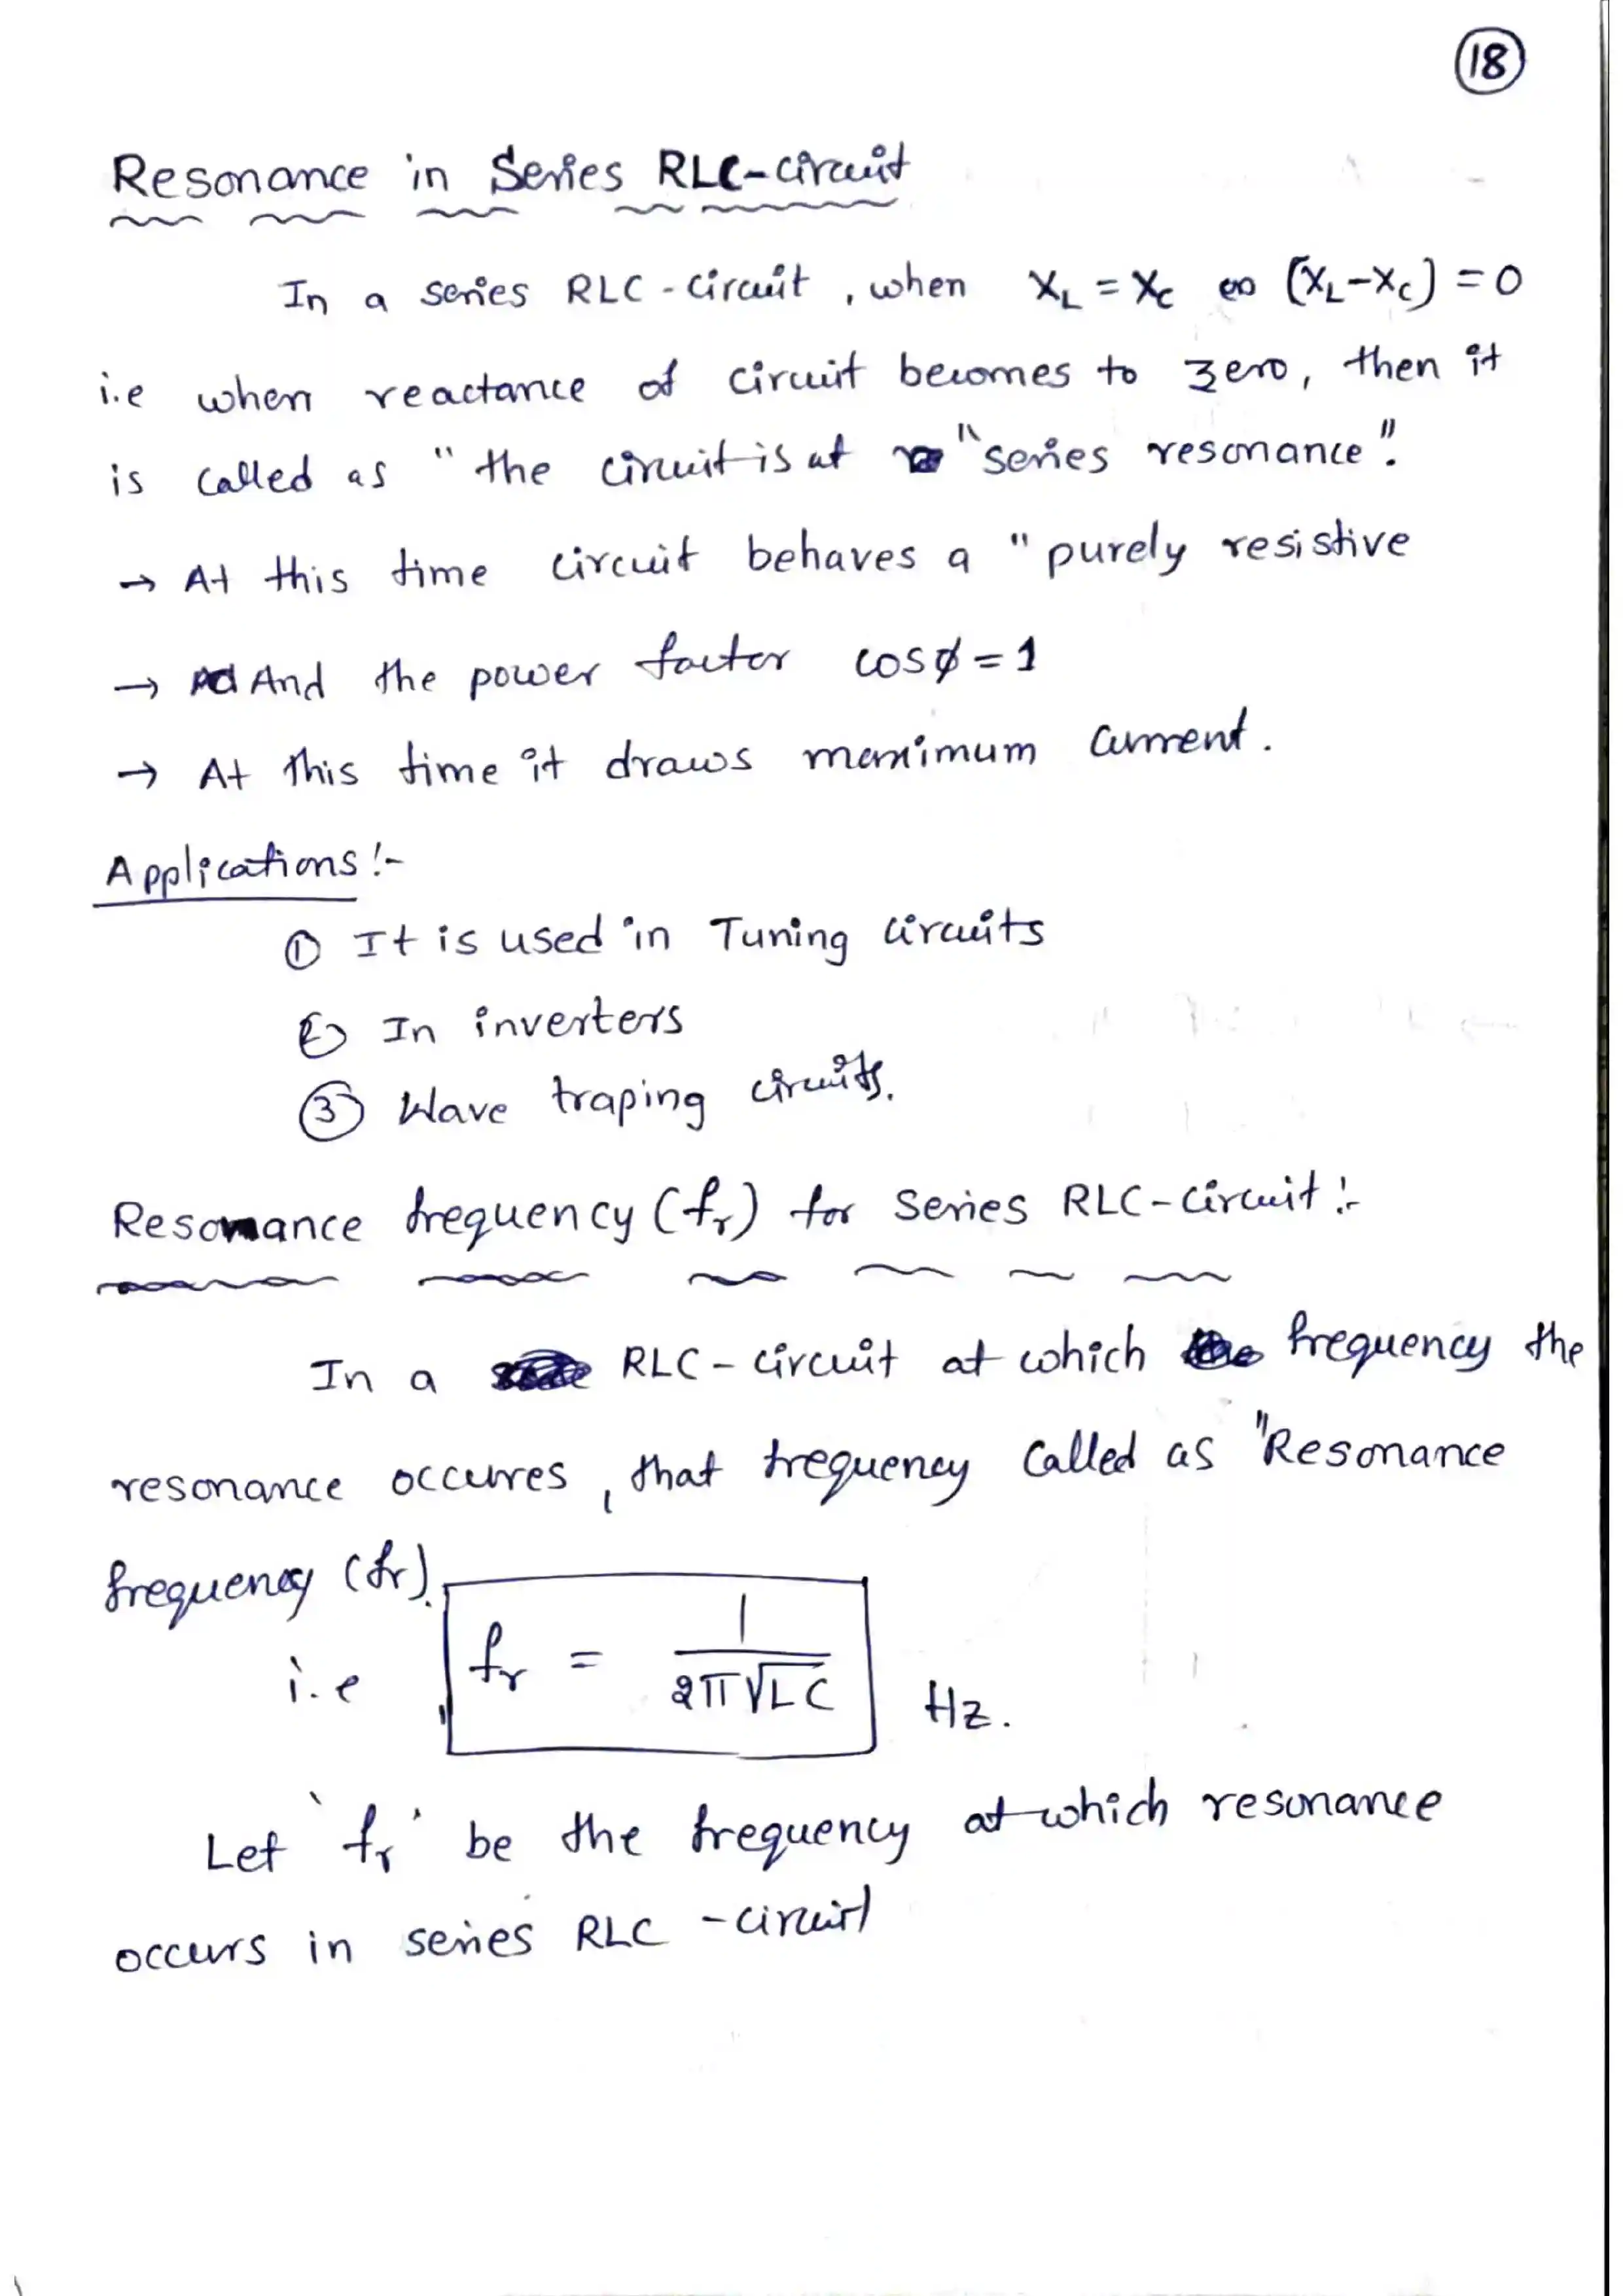 18
Resonance in Series RLC-circuit
In a series RLC-circuit, when X_L = X_C or (X_L-X_C) = 0
i.e when reactance of circuit becomes to zero, then it
is called as "the circuit is at "series resonance".
→ At this time circuit behaves a "purely resistive
→ And the power factor cosϕ = 1
→ At this time it draws maximum current.
Applications:-
① It is used in Tuning circuits
② In inverters
③ Wave traping circuits.
Resonance frequency (fr) for Series RLC-circuit:-
In a RLC-circuit at which frequency the
resonance occures, that frequency called as "Resonance
frequency (fr).
i.e fr = 1/2π√LC Hz.
Let 'fr' be the frequency at which resonance
occurs in series RLC-circuit